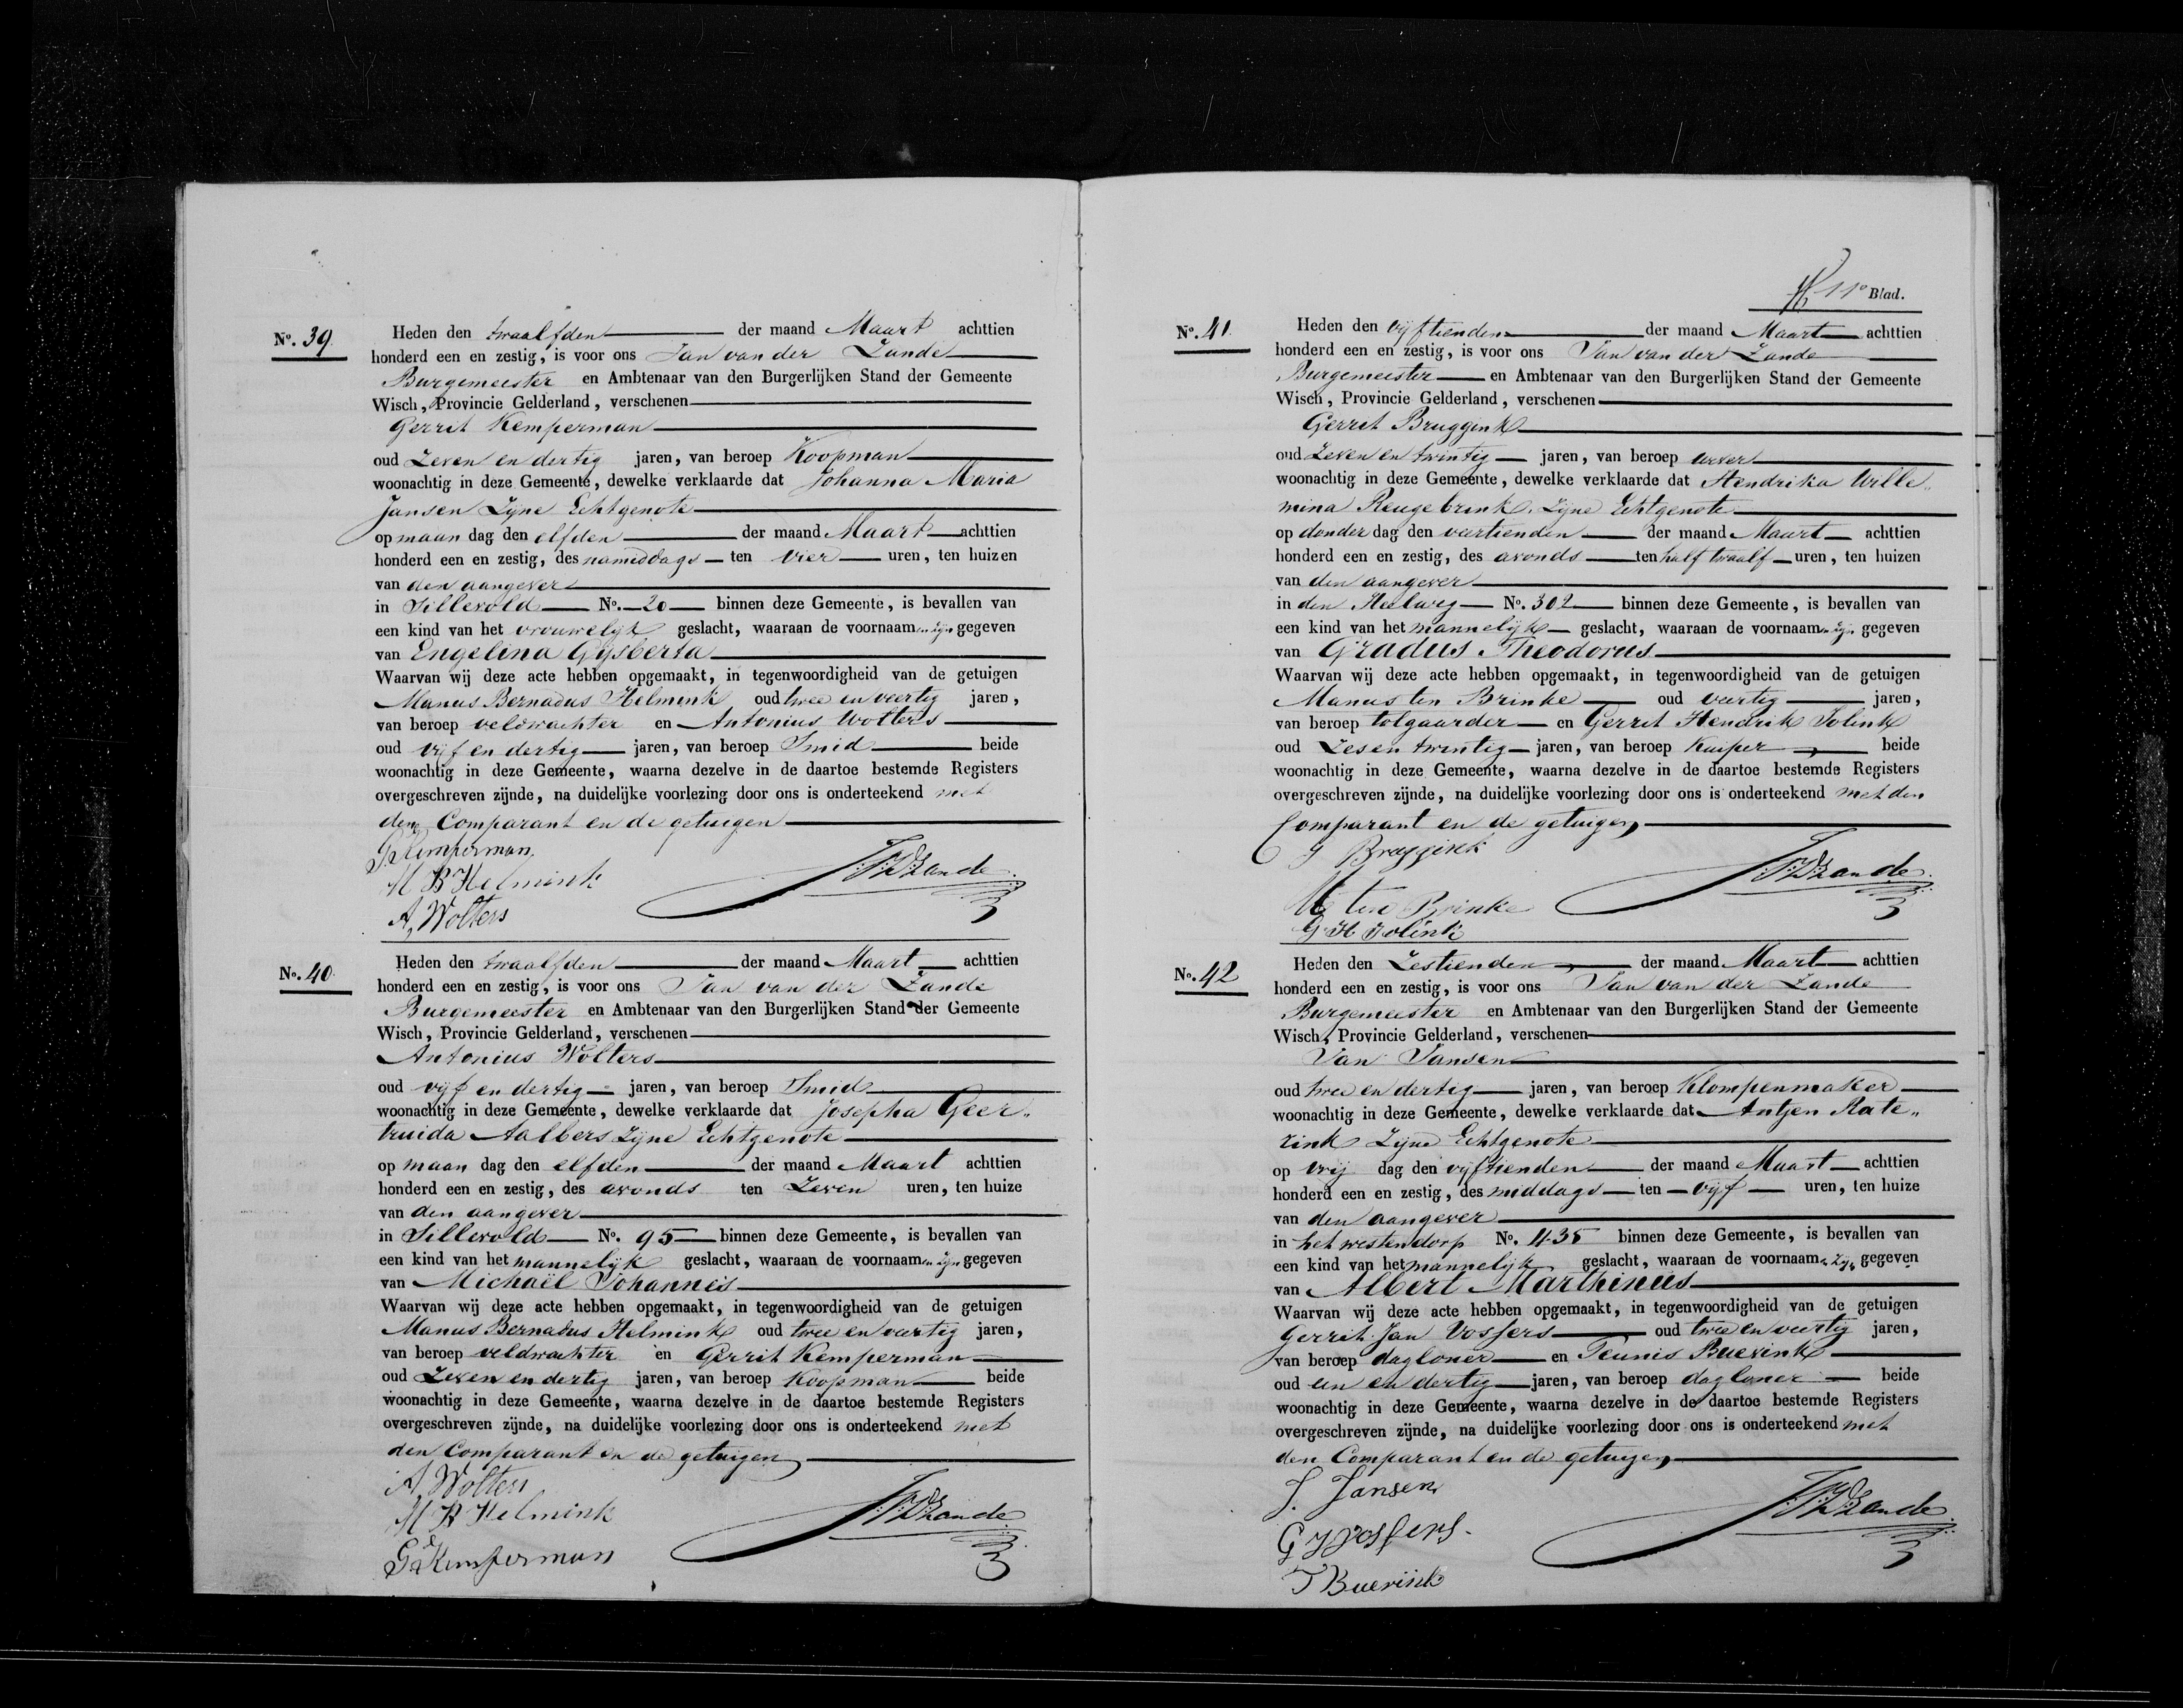 No. 39
Heden den twaalfden der maand Maart achttien
honderd een en zestig, is voor ons Jan van der Zande
Burgemeester en Ambtenaar van den Burgerlijken Stand der Gemeente
Wisch, Provincie Gelderland, verschenen
Gerrit Kemperman
oud Zeven en dertig jaren, van beroep Koopman
woonachtig in deze Gemeente, dewelke verklaarde dat Johanna Maria
Jansen Zijne Echtgenote
op maan dag den elfden der maand Maart achttien
honderd een en zestig, des namiddags ten vier uren, ten huizen
van den aangever
in Sillevold No. 20 binnen deze Gemeente, is bevallen van
een kind van het vrouwelijk geslacht, waaraan de voornaamen zijn gegeven
van Engelina Gijsberta
Waarvan wij deze acte hebben opgemaakt, in tegenwoordigheid van de getuigen
Manus Bernadus Helmink oud twee en veertig jaren,
van beroep veldwachter en Antonius Wolters
oud vijf en dertig jaren, van beroep Smid beide
woonachtig in deze Gemeente, waarna dezelve in de daartoe bestemde Registers
overgeschreven zijnde, na duidelijke voorlezing door ons is onderteekend met
den Comparant en de getuigen
G Kemperman
M B Helmink
A, Wolters
JVDZande
No. 40
Heden den twaalfden der maand Maart achttien
honderd een en zestig, is voor ons Jan van der Zande
Burgemeester en Ambtenaar van den Burgerlijken Stand der Gemeente
Wisch, Provincie Gelderland, verschenen
Antonius Wolters
oud vijf en dertig jaren, van beroep Smid
woonachtig in deze Gemeente, dewelke verklaarde dat Josepha Geer„
truida Aalbers Zijne Echtgenote
op maan dag den elfden der maand Maart achttien
honderd een en zestig, des avonds ten Zeven uren, ten huize
van den aangever
in Sillevold No. 95 binnen deze Gemeente, is bevallen van
een kind van het mannelijk geslacht, waaraan de voornaamen zijn gegeven
van Michaël Johannes
Waarvan wij deze acte hebben opgemaakt, in tegenwoordigheid van de getuigen
Manus Bernadus Helmink oud twee en veertig jaren,
van beroep veldwachter en Gerrit Kemperman
oud Zeven en dertig jaren, van beroep Koopman beide
woonachtig in deze Gemeente, waarna dezelve in de daartoe bestemde Registers
overgeschreven zijnde, na duidelijke voorlezing door ons is onderteekend met
den Comparant en de getuigen
A, Wolters
M B Helmink
G Kemperman
JVDZande
11e Blad.
No. 41
Heden den vijftienden der maand Maart achttien
honderd een en zestig, is voor ons Jan van der Zande
Burgemeester en Ambtenaar van den Burgerlijken Stand der Gemeente
Wisch, Provincie Gelderland, verschenen
Gerrit Bruggink
oud Zeven en twintig jaren, van beroep wever
woonachtig in deze Gemeente, dewelke verklaarde dat Hendrika Wille„
mina Reugebrink Zijne Echtgenote
op donder dag den veertienden der maand Maart achttien
honderd een en zestig, des avonds ten half twaalf uren, ten huizen
van den aangever
in den Heelweg No. 302 binnen deze Gemeente, is bevallen van
een kind van het mannelijk geslacht, waaraan de voornaamen zijn gegeven
van Gradus Theodorus
Waarvan wij deze acte hebben opgemaakt, in tegenwoordigheid van de getuigen
Manus ten Brinke oud veertig jaren,
van beroep tolgaarder en Gerrit Hendrik Jolink
oud Zes en twintig jaren, van beroep Kuiper beide
woonachtig in deze Gemeente, waarna dezelve in de daartoe bestemde Registers
overgeschreven zijnde, na duidelijke voorlezing door ons is onderteekend met den
Comparant en de getuigen
G Bruggink
M ten Brinke
G H Jolink
JVDZande
No. 42
Heden den Zestienden der maand Maart achttien
honderd een en zestig, is voor ons Jan van der Zande
Burgemeester en Ambtenaar van den Burgerlijken Stand der Gemeente
Wisch, Provincie Gelderland, verschenen
Jan Jansen
oud twee en dertig jaren, van beroep Klompenmaker
woonachtig in deze Gemeente, dewelke verklaarde dat Antjen Rate„
rink Zijne Echtgenote
op vrij dag den vijftienden der maand Maart achttien
honderd een en zestig, des middags ten vijf uren, ten huize
van den aangever
in het westendorp No. 435 binnen deze Gemeente, is bevallen van
een kind van het mannelijk geslacht, waaraan de voornaamen zijn gegeven
van Albert Marthinus
Waarvan wij deze acte hebben opgemaakt, in tegenwoordigheid van de getuigen
Gerrit Jan Vossers oud twee en veertig jaren,
van beroep dagloner en Teunis Buerink
oud een en dertig jaren, van beroep dagloner beide
woonachtig in deze Gemeente, waarna dezelve in de daartoe bestemde Registers
overgeschreven zijnde, na duidelijke voorlezing door ons is onderteekend met
den Comparant en de getuigen
J. Jansen
G J Vossers
T Buerink
JVDZande